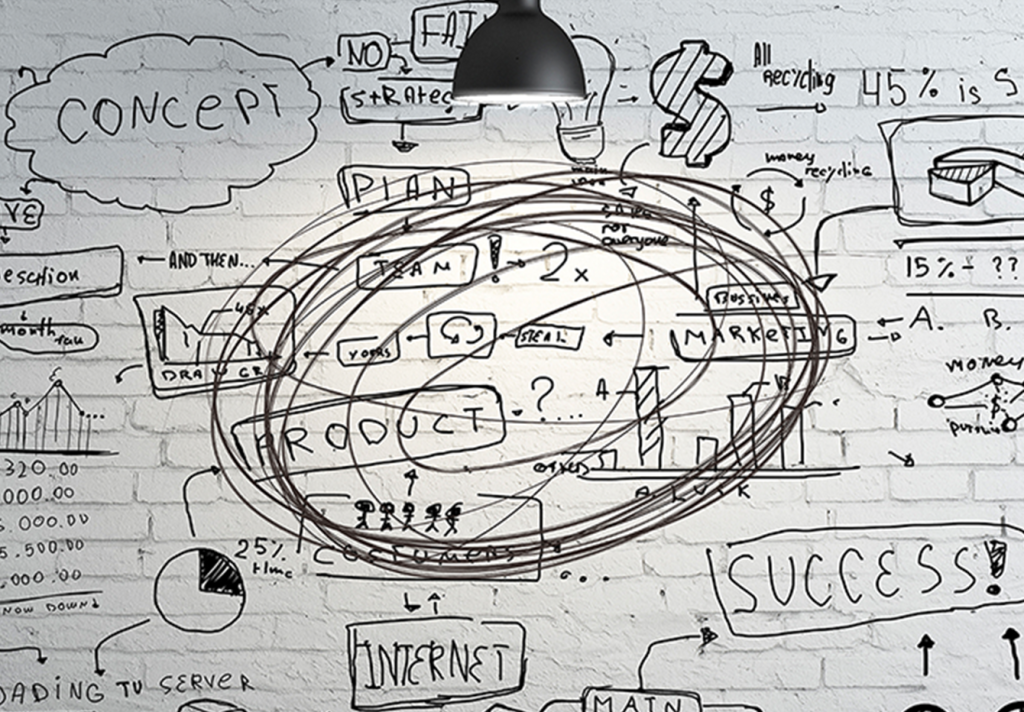 CONCEPT
NO
FAI
STRATEG
$
All
Recycling
45% is S
money
recycling
$
PLAN
main
VE
AND THEN...
TEAM
! 2x
sales
for
everyone
15% - ??
escrtion
month
45%
DRAW GR
YOURS
STEAL
MARKETING
A. B.
PRODUCT
?...
A
others
money
320.00
000.00
5 000.00
5.500.00
.000.00
NOW DOWN
25%
time
COSTUMERS
...
SUCCESS!
INTERNET
OADING TV SERVER
MAIN